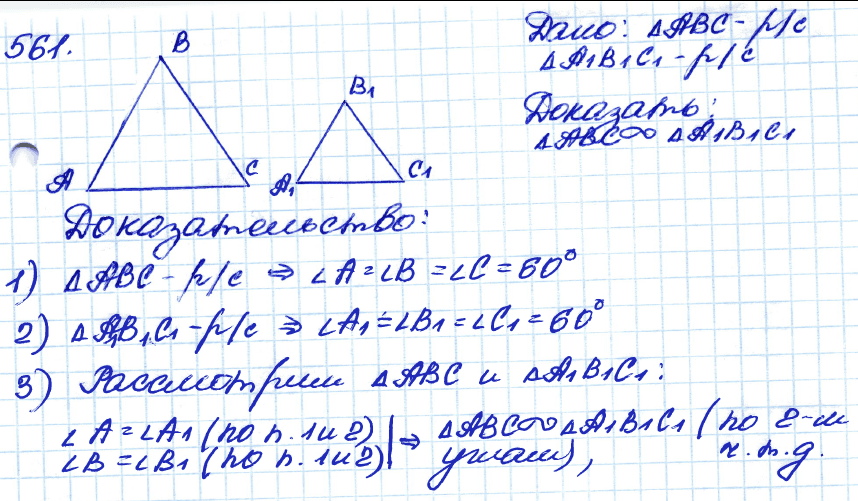 561.
B
A
C
B1
A1
C1
Дано: △ABC - р/с
△A1B1C1 - р/с
Доказать:
△ABC ∾ △A1B1C1
Доказательство:
1) △ABC - р/с ⇒ ∠A = ∠B = ∠C = 60°
2) △A1B1C1 - р/с ⇒ ∠A1 = ∠B1 = ∠C1 = 60°
3) Рассмотрим △ABC и △A1B1C1:
∠A = ∠A1 (по п. 1 и 2) | ⇒ △ABC ∾ △A1B1C1 (по 2-м
∠B = ∠B1 (по п. 1 и 2) | углам), ч.т.д.